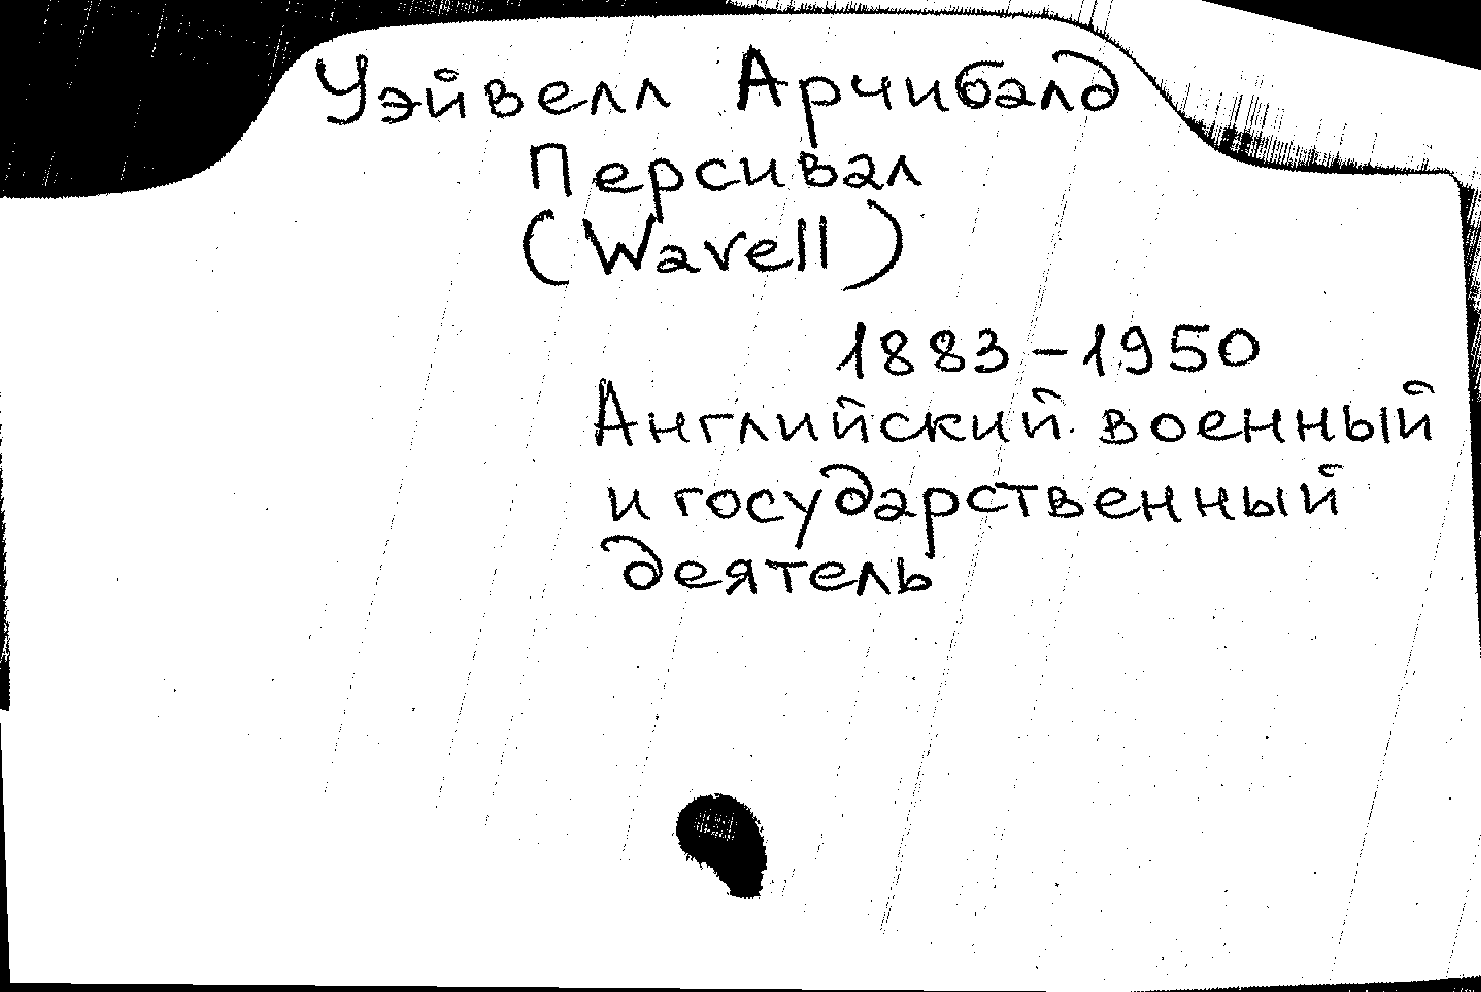 Уэйвелл Арчибалд
Персивал
(Wavell)
1883-1950
Английский военный
и государственный
деятель